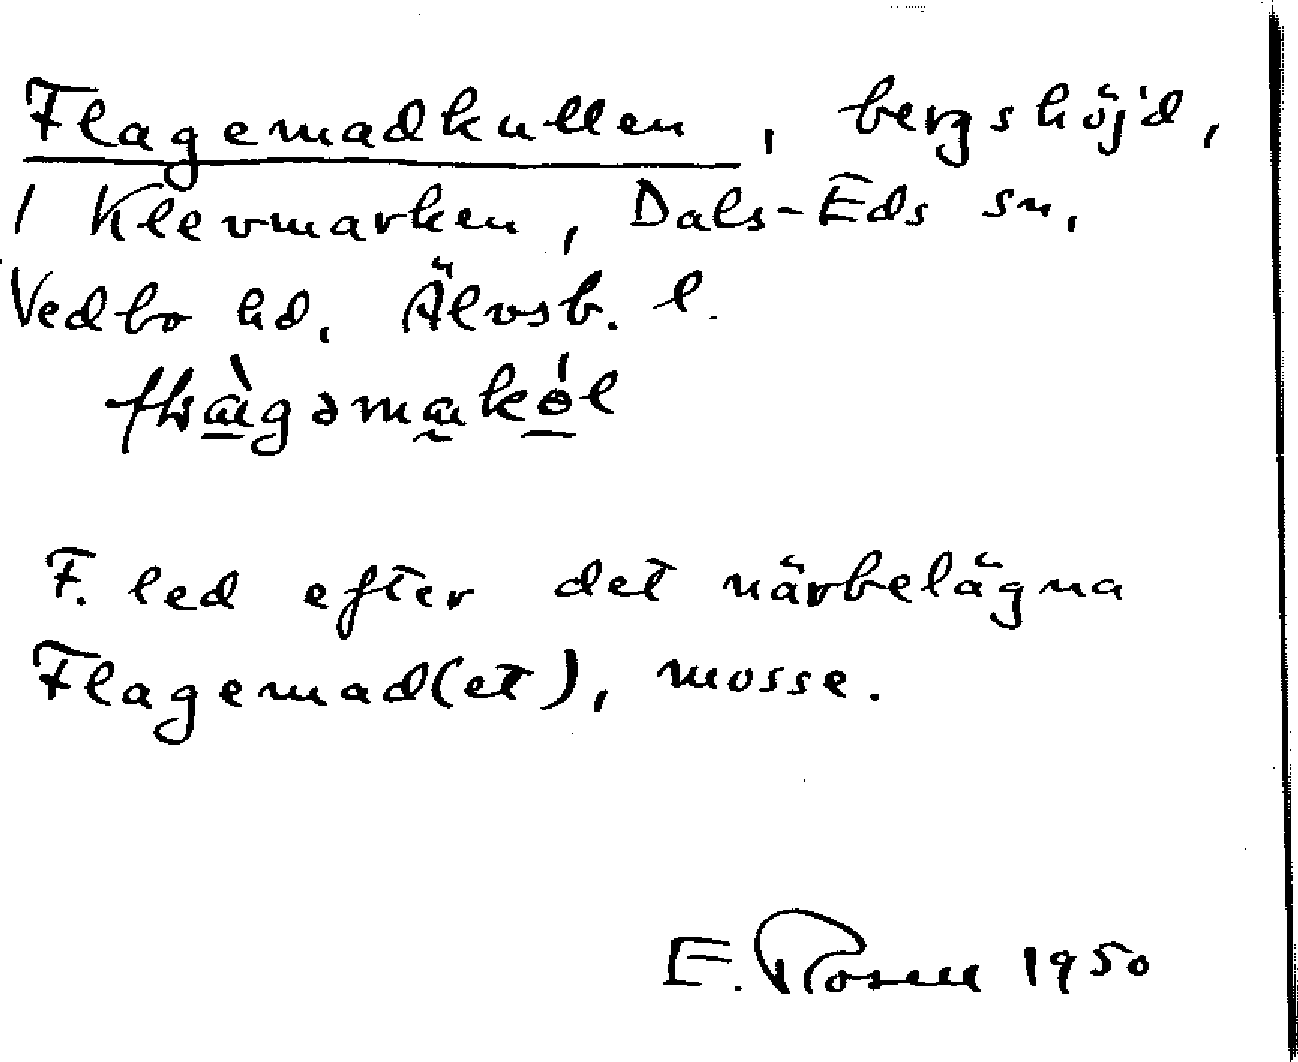 Flagemadkullen, bergshöjd,
1 Klevmarken, Dals-Eds sn,
Vedbo hd, Älvsb. l.
F. led efter det närbelägna
Flagemad(et), mosse.
E. Rosell 1950